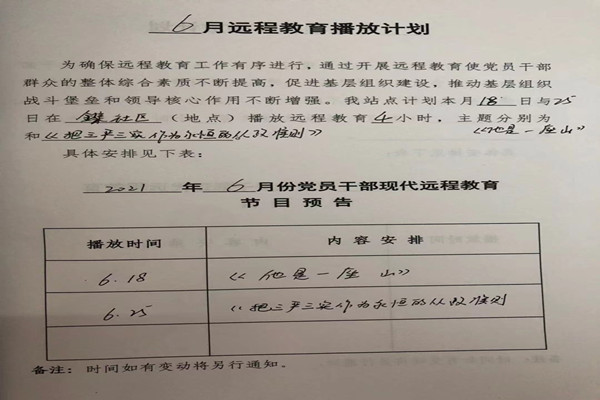 6月远程教育播放计划
为确保远程教育工作有序进行，通过开展远程教育使党员干部
群众的整体综合素质不断提高，促进基层组织建设，推动基层组织
战斗堡垒和领导核心作用不断增强。我站点计划本月18日与25
日在 社区（地点）播放远程教育4小时，主题分别为《他是一座山》
和《把三严三实作为永恒的从政准则》
具体安排见下表：
2021年6月份党员干部现代远程教育
节目预告
播放时间 内容安排
6.18 《他是一座山》
6.25 《把三严三实作为永恒的从政准则
备注：时间如有变动将另行通知。